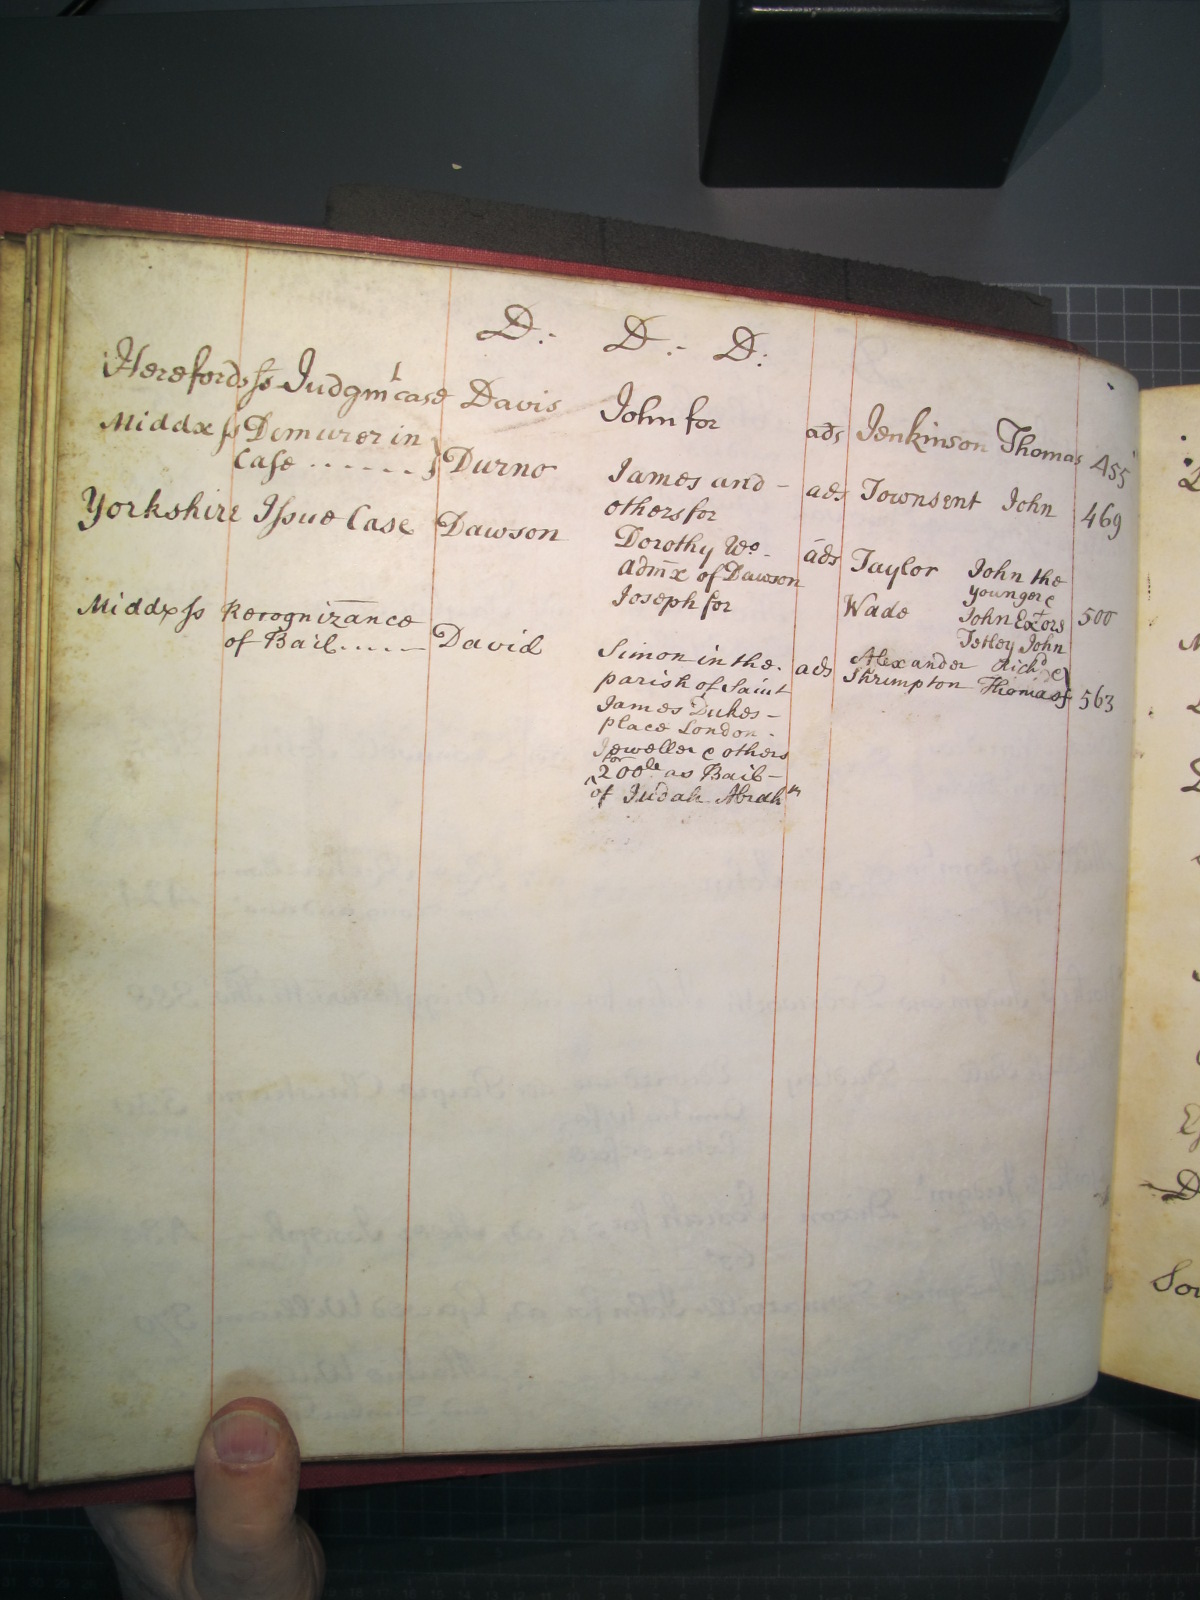 D:- D:- D:
Herefords ss Judgmt case Davis John for ads Jenkinson Thomas 455
Middx ss Demurer in Case ...... } Durno James and - others for ads Townsent John 469
Yorkshire Issue Case Dawson Dorothy Wo. ads Taylor John the
admx of Dawson younger &
Joseph for Wade John Extors 500
Tetley John
Middx ss Recognizance David Simon in the ads Alexander Richd &
of Bail..... parish of Saint Shrimpton Thomas 563
James Dukes -
place London -
Jeweller & others
for
200le as Bail -
of Judah Abrahm